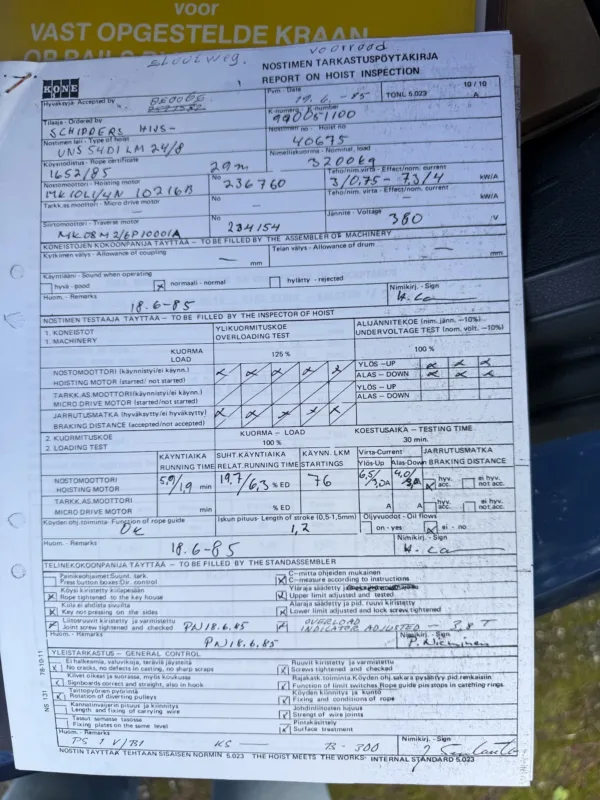 voor
VAST OPGESTELDE KRAAN
voorraad
KONE
NOSTIMEN TARKASTUSPÖYTÄKIRJA
REPORT ON HOIST INSPECTION
Pvm. - Date
19.6.-85
TONL 5.023
10/10
A
Hyväksyjä - Accepted by
K-numero - K-number
990051100
Tilaaja - Ordered by
SCHIPPERS HIJS-
Nostimen no - Hoist no
40675
Nostimen laji - Type of hoist
UNS 54D1LM 24/8
Nimelliskuorma - Nominal, load
3200kg
Köysitodistus - Rope certificate
1652/85
29m
Nostomoottori - Hoisting motor
MK10L1/4N 10216B
No
236760
Teho/nim.virta - Effect/nom. current
3/0,75 - 7,3/4
kW/A
Tarkk.as.moottori - Micro drive motor
—
No
—
Teho/nim.virta - Effect/nom. current
—
kW/A
Siirtomoottori - Traverse motor
MK08M2/6P1000IA
No
234154
Jännite - Voltage
380
/V
KONEISTOJEN KOKOONPANIJA TÄYTTÄÄ – TO BE FILLED BY THE ASSEMBLER OF MACHINERY
Kytkimen välys - Allowance of coupling
— mm
Telan välys - Allowance of drum
— mm
Käyntiääni - Sound when operating
hyvä - good
x normaali - normal
hylätty - rejected
Huom. - Remarks
18.6-85
Nimikirj. - Sign
NOSTIMEN TESTAAJA TÄYTTÄÄ – TO BE FILLED BY THE INSPECTOR OF HOIST
1. KONEISTOT
1. MACHINERY
YLIKUORMITUSKOE
OVERLOADING TEST
ALIJÄNNITEKOE (nim. jänn. –10%)
UNDERVOLTAGE TEST (nom. volt. –10%)
KUORMA
LOAD
125 %
100 %
NOSTOMOOTTORI (käynnistyi/ei käynn.)
HOISTING MOTOR (started/ not started)
YLÖS –UP
ALAS – DOWN
TARKK.AS.MOOTTORI(käynnistyi/ei käynn.)
MICRO DRIVE MOTOR (started/not started)
YLÖS –UP
ALAS – DOWN
JARRUTUSMATKA (hyväksytty/ei hyväksytty)
BRAKING DISTANCE (accepted/not accepted)
2. KUORMITUSKOE
2. LOADING TEST
KUORMA – LOAD
100 %
KOESTUSAIKA – TESTING TIME
30 min.
KÄYNTIAIKA
RUNNING TIME
SUHT.KÄYNTIAIKA
RELAT.RUNNING TIME
KÄYNN. LKM
STARTINGS
Virta-Current
Ylös-Up Alas-Down
JARRUTUSMATKA
BRAKING DISTANCE
NOSTOMOOTTORI
HOISTING MOTOR
5,9/1,9 min
19,7/6,3 % ED
76
hyv.
acc.
ei hyv.
not acc.
TARKK.AS.MOOTTORI
MICRO DRIVE MOTOR
min
% ED
A
A
hyv.
acc.
ei hyv.
not acc.
Köyden ohj.toiminta- Function of rope guide
OK
Iskun pituus- Length of stroke (0,5-1,5mm)
1,2
Öljyvuodot - Oil flows
on - yes
x ei - no
Huom. - Remarks
18.6-85
Nimikirj. - Sign
TELINEKOKOONPANIJA TÄYTTÄÄ – TO BE FILLED BY THE STANDASSEMBLER
Painikeohjaimet:Suunt. tark.
Press button boxes:Dir. control
x C-mitta ohjeiden mukainen
C-measure according to instructions
x Köysi kiristetty kiilapesään
Rope tightened to the key house
x Yläraja säädetty ja
Upper limit adjusted and tested
x Kiila ei ahdista sivuilta
Key not pressing on the sides
x Alaraja säädetty ja pid. ruuvi kiristetty
Lower limit adjusted and lock screw tightened
x Liitosruuvit kiristetty ja varmistettu
Joint screw tightened and checked
PN 18.6.85
x OVERLOAD
INDICATOR ADJUSTED – 3,8 T
Huom. - Remarks
PN 18.6.85
Nimikirj. - Sign
P. Nieminen
YLEISTARKASTUS – GENERAL CONTROL
Ei halkeamia, valuvikoja, teräviä jäysteitä
No cracks, no defects in casting, no sharp scraps
Ruuvit kiristetty ja varmistettu
Screws tightened and checked
Kilvet oikein ja suorassa, myös koukussa
Signboards correct and straight, also in hook
Rajakatk.toiminta.Köyden ohj.sakara pysähtyy pid.renkaisiin
Function of limit switches.Rope guide pin stops in catching rings.
Taittopyörien pyörintä
Rotation of diverting pulleys
Köyden kiinnitys ja kunto
Fixing and conditions of rope
Kannatinvaijerin pituus ja kiinnitys
Length and fixing of carrying wire
Johdinliitosten lujuus
Strengt of wire joints
Tasot samassa tasossa
Fixing plates on the same level
Pintakäsittely
Surface treatment
Huom. - Remarks
PS 1 V/B1
KS —
B - 300
Nimikirj. - Sign
NOSTIN TÄYTTÄÄ TEHTAAN SISÄISEN NORMIN 5.023 THE HOIST MEETS THE WORKS' INTERNAL STANDARD 5.023
NS 131 78-10-11